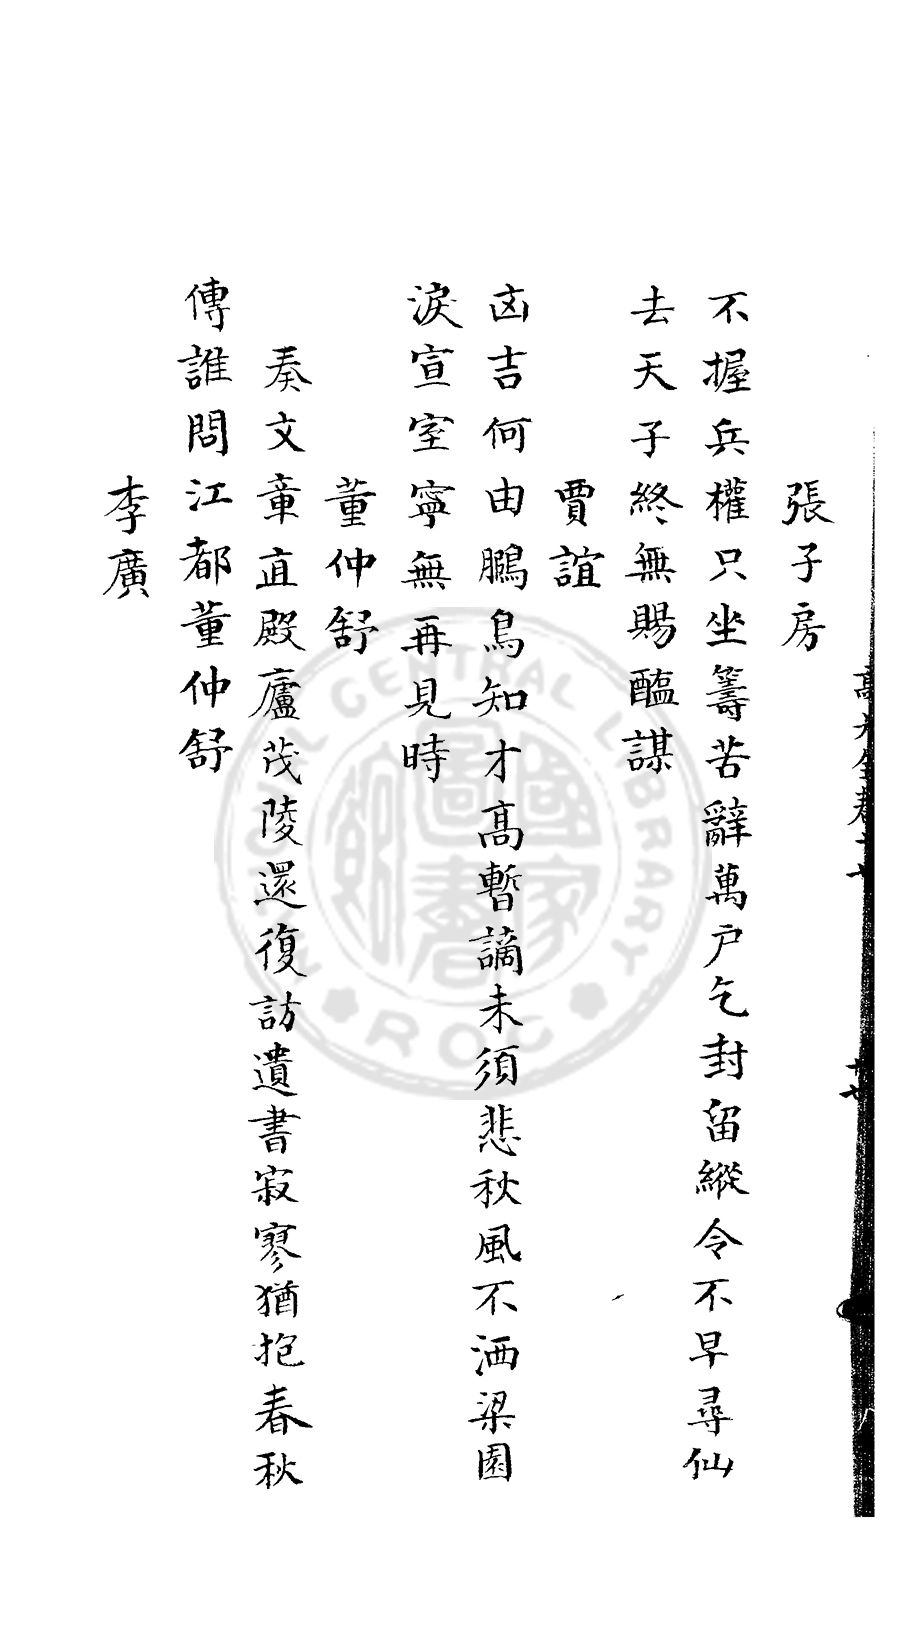 張子房
不握兵權只坐籌苦辭萬户乞封留縱令不早尋仙
去天子終無賜醢謀
賈誼
凶吉何由鵩鳥知才高暫謫未須悲秋風不洒梁園
淚宣室寧無再見時
董仲舒
奏文章直殿廬茂陵還復訪遺書寂寥猶抱春秋
傳誰問江都董仲舒
李廣
NATIONAL CENTRAL LIBRARY
ROC
國家圖書館